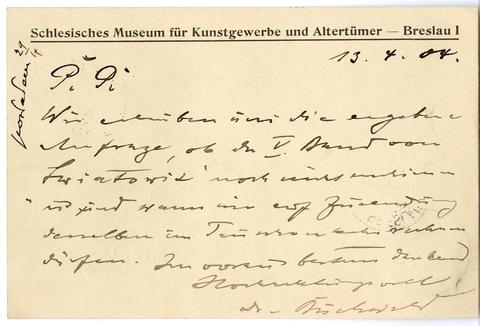 Schlesisches Museum für Kunstgewerbe und Altertümer — Breslau I
13. 4. 04.
P. P.
Wir erlauben uns die ergebene
Anfrage, ob der V. Band von
"Swiatowit" noch nicht erschienen
ist und wann wir auf Zusendung
desselben im Tauschverkehr rechnen
dürfen. Im voraus bestens dankend
Hochachtungsvoll